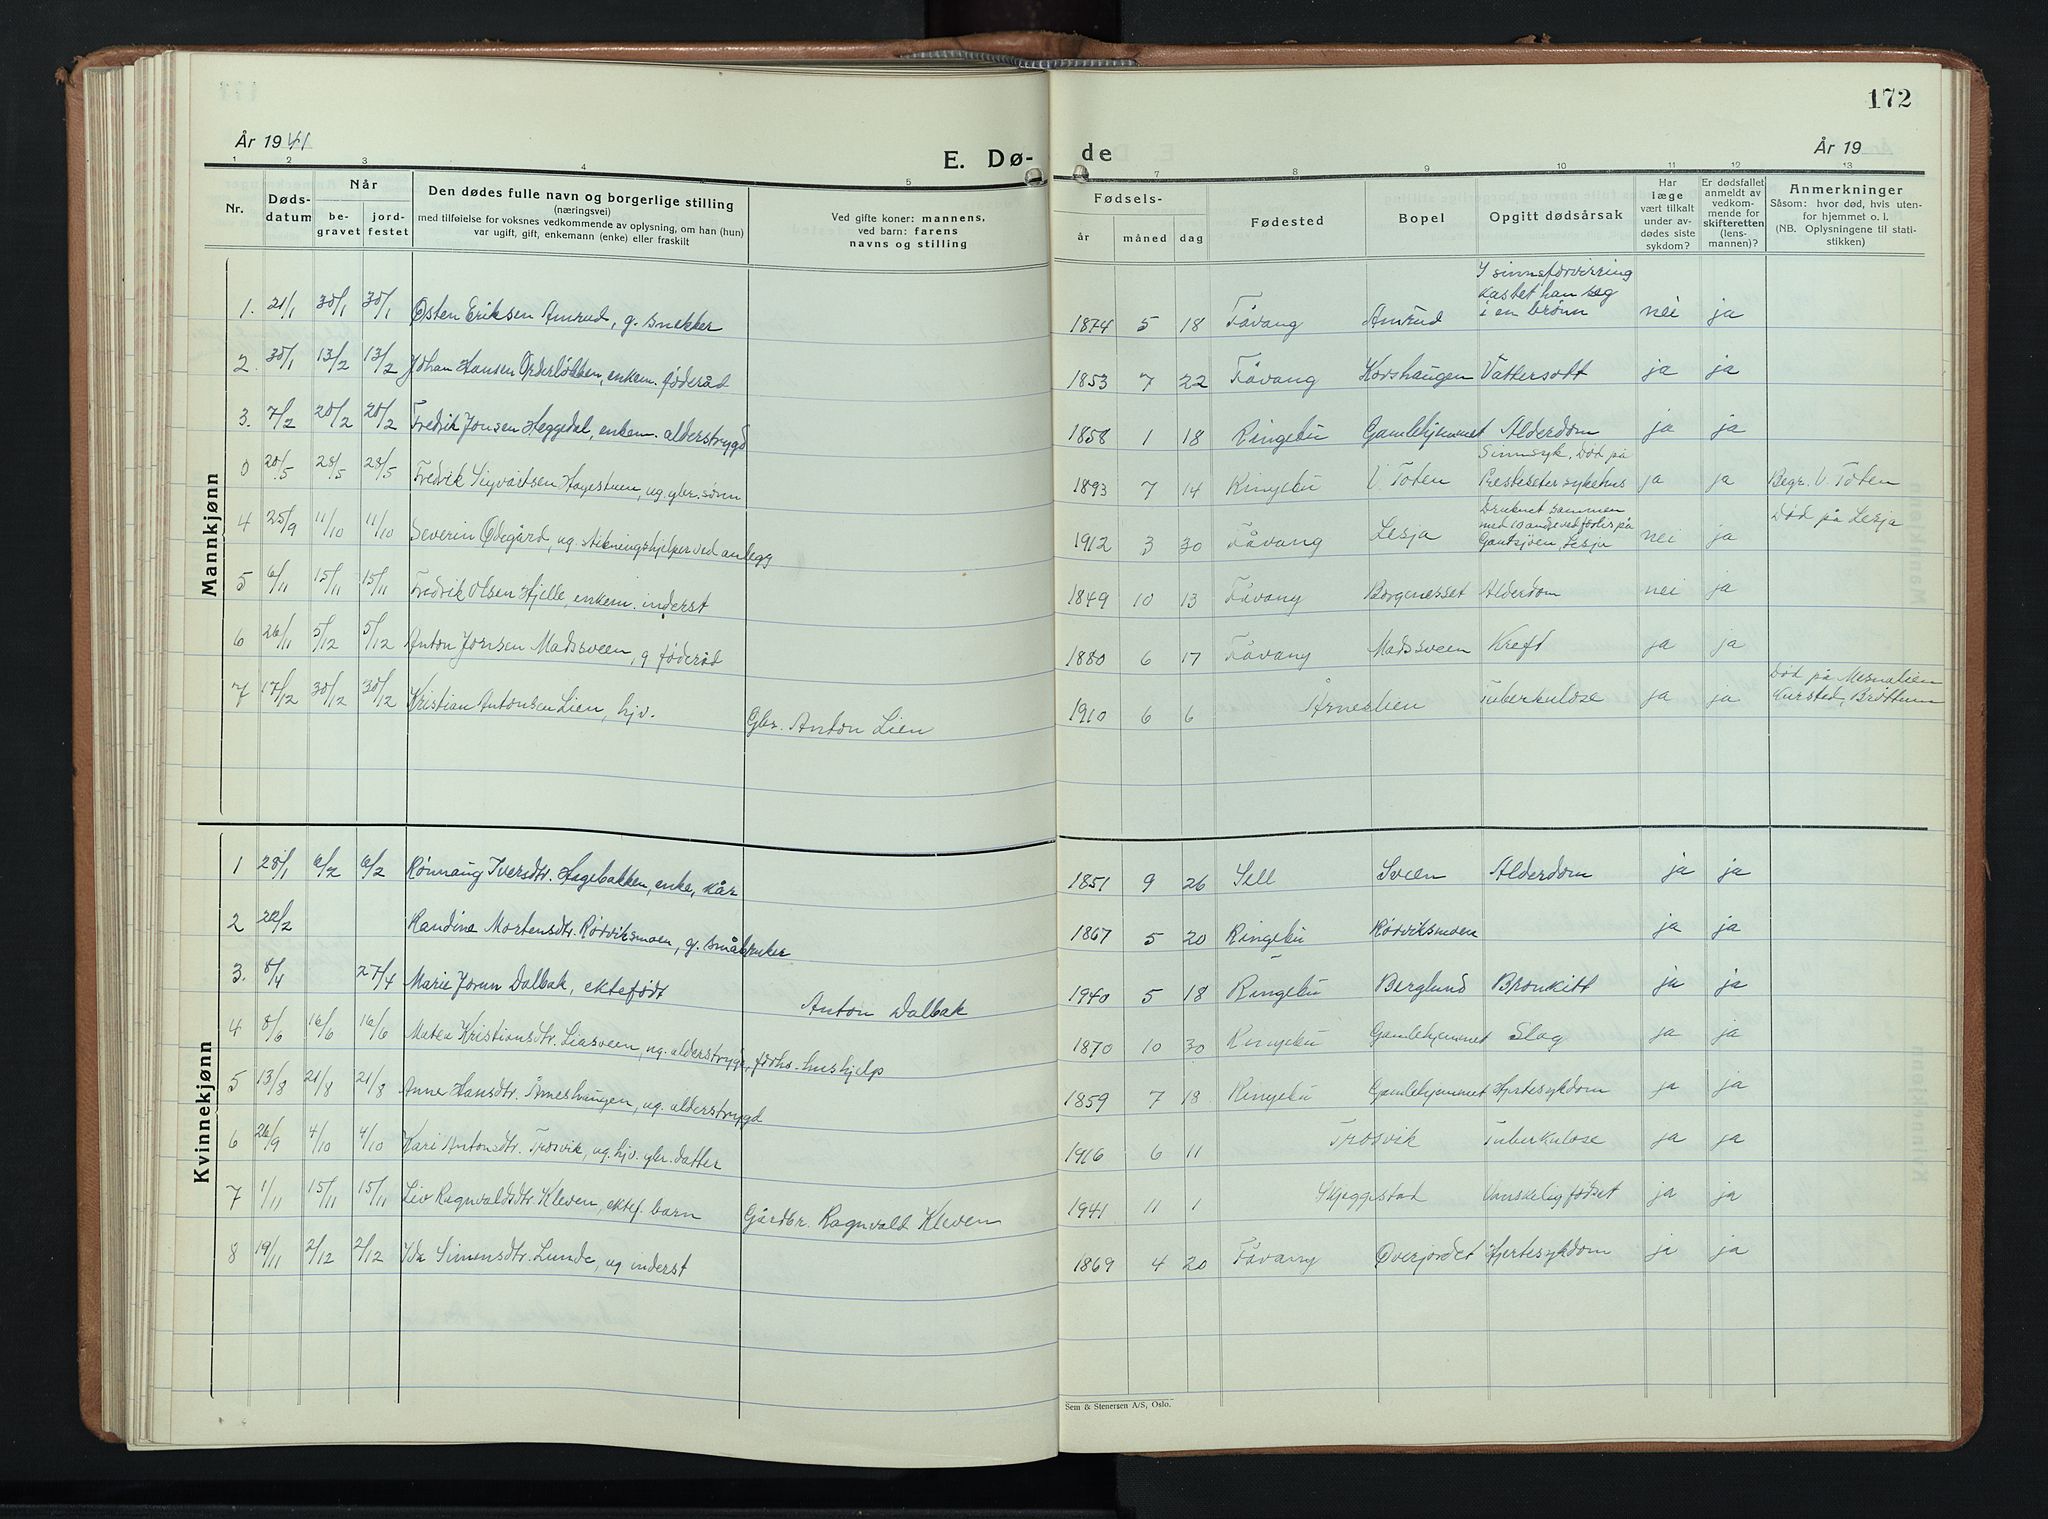 172
År 1941
E. Dø-
de
År 19
1 2 3 4 5 7 8 9 10 11 12 13
Nr.
Døds-
datum
Når
be-
gravet
jord-
festet
Den dødes fulle navn og borgerlige stilling
(næringsvei)
med tilføielse for voksnes vedkommende av oplysning, om han (hun)
var ugift, gift, enkemann (enke) eller fraskilt
Ved gifte koner: mannens,
ved barn: farens
navns og stilling
Fødsels-
år måned dag
Fødested
Bopel
Opgitt dødsårsak
Har
læge
vært tilkalt
under av-
dødes siste
sykdom?
Er dødsfallet
anmeldt av
vedkom-
mende for
skifteretten
(lens-
mannen)?
Anmerkninger
Såsom: hvor død, hvis uten-
for hjemmet o. l.
(NB. Oplysningene til stati-
stikken)
Mannkjønn
I sinnsforvirring
kastet han seg
1. 21/1 30/1 30/1 Østen Eriksen Amrud, g. snekker 1874 5 18 Fåvang Amrud i en brønn nei ja
2. 30/1 13/2 13/2 Johan HansenØrderløkken, enkem. føderåd 1853 7 22 Fåvang Korshaugen Vattersott ja ja
3. 7/2 20/2 20/2 Fredrik Jonsen Heggedal, enkem. alderstrygd 1858 1 18 Ringebu Gamlehjemmet Alderdom ja ja
Sinnsyk. Død på
0 20/5 28/5 28/5 Fredrik Sigvartsen Hagestuen, ug. gbr. sønn 1893 7 14 Ringebu V. Toten Presteseter sykehus ja ja Begr. V. Toten
Druknet sammen
med 10 andre ved forlis på
4 25/9 11/10 11/10 Severin Ødegård, ug. stikningshjelper ved anlegg 1912 3 30 Fåvang Lesja Gautsjøen, Lesja nei ja Død på Lesja
5 6/11 15/11 15/11 Fredrik Olsen Hjelle, enkem. inderst 1849 10 13 Fåvang Borgenesset Alderdom nei ja
6 26/11 5/12 5/12 Anton Jonsen Madssveen, g. føderåd 1880 6 17 Fåvang Madssveen Kreft ja ja
7 17/12 30/12 30/12 Kristian Antonsen Lien, hjv. Gbr. Anton Lien 1910 6 6 Årneslien Tuberkulose ja ja Død på Mesnalien
Kursted, Brøttum
Kvinnekjønn
1 28/1 6/2 6/2 Rønnaug Iversdtr. Hagebakken, enke, kår 1851 9 26 Sell Sveen Alderdom ja ja
2 22/2 Randine Mortensdtr. Rørviksmoen, g. småbruker 1867 5 20 Ringebu Rørviksmoen ja ja
3. 8/4 27/4 Marie Jorun Dalbak, ektefødt Anton Dalbak 1940 5 18 Ringebu Berglund Bronkitt ja ja
4 8/6 16/6 16/6 Matea Kristiansdtr. Liasveen, ug. alderstrygd, forhv. hushjelp 1870 10 30 Ringebu Gamlehjemmet Slag ja ja
5 13/8 21/8 21/8 Anne Hansdtr. Årneshaugen, ug. alderstrygd 1859 7 18 Ringebu Gamlehjemmet Hjertesykdom ja ja
6 26/9 4/10 4/10 Kari Antonsdtr. Trosvik, ug. hjv. gbr. datter 1916 6 11 Trosvik Tuberkulose ja ja
7 1/11 15/11 15/11 Liv Ragnvaldsdtr. Kleven, ektef. barn Gårdbr. Ragnvald Kleven 1941 11 1 Skjeggestad Vanskelig fødsel ja ja
8 19/11 2/12 2/12 Ida Simensdtr. Lunde, ug. inderst 1869 4 20 Fåvang Øverjordet Hjertesykdom ja ja
Sem & Stenersen A/S, Oslo.